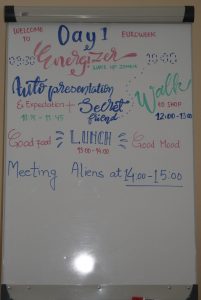 WELCOME TO Day 1 EUROWEEK
09:30 Energizer 10:00
Auto presentation
Ex Expectation + Secret friend
Walk to SHOP
12:00-13:00
Good Food LUNCH Good Mood
13:00-14:00
Meeting Aliens at 14:00-15:00